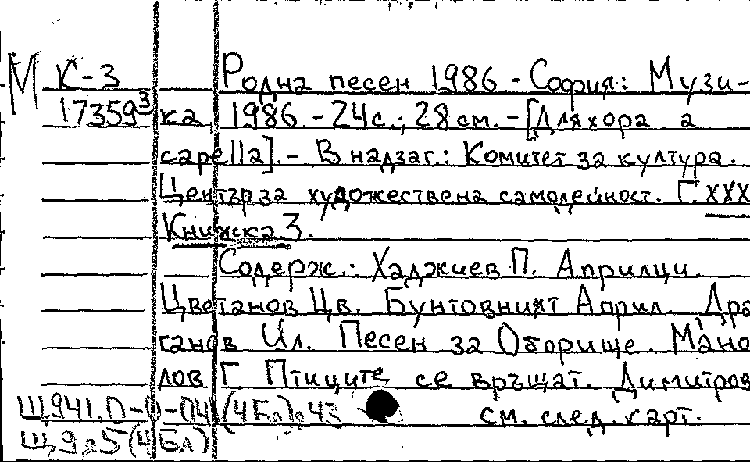 М К-3 Родна песен 1986.- София: Музи-
17359³ ка, 1986.-24с.; 28см.-[Для хора а
capella].- В надзаг.: Комитет за култура.
Център за художествена самодейност. Г. XXX
Книжка 3.
Содерж.: Хаджиев П. Априлци.
Цветанов Цв. Бунтовният Април. Дра
ганов Ил. Песен за Оборище. Мано
лов Г. Птиците се връщат. Димитров
см. след. карт.